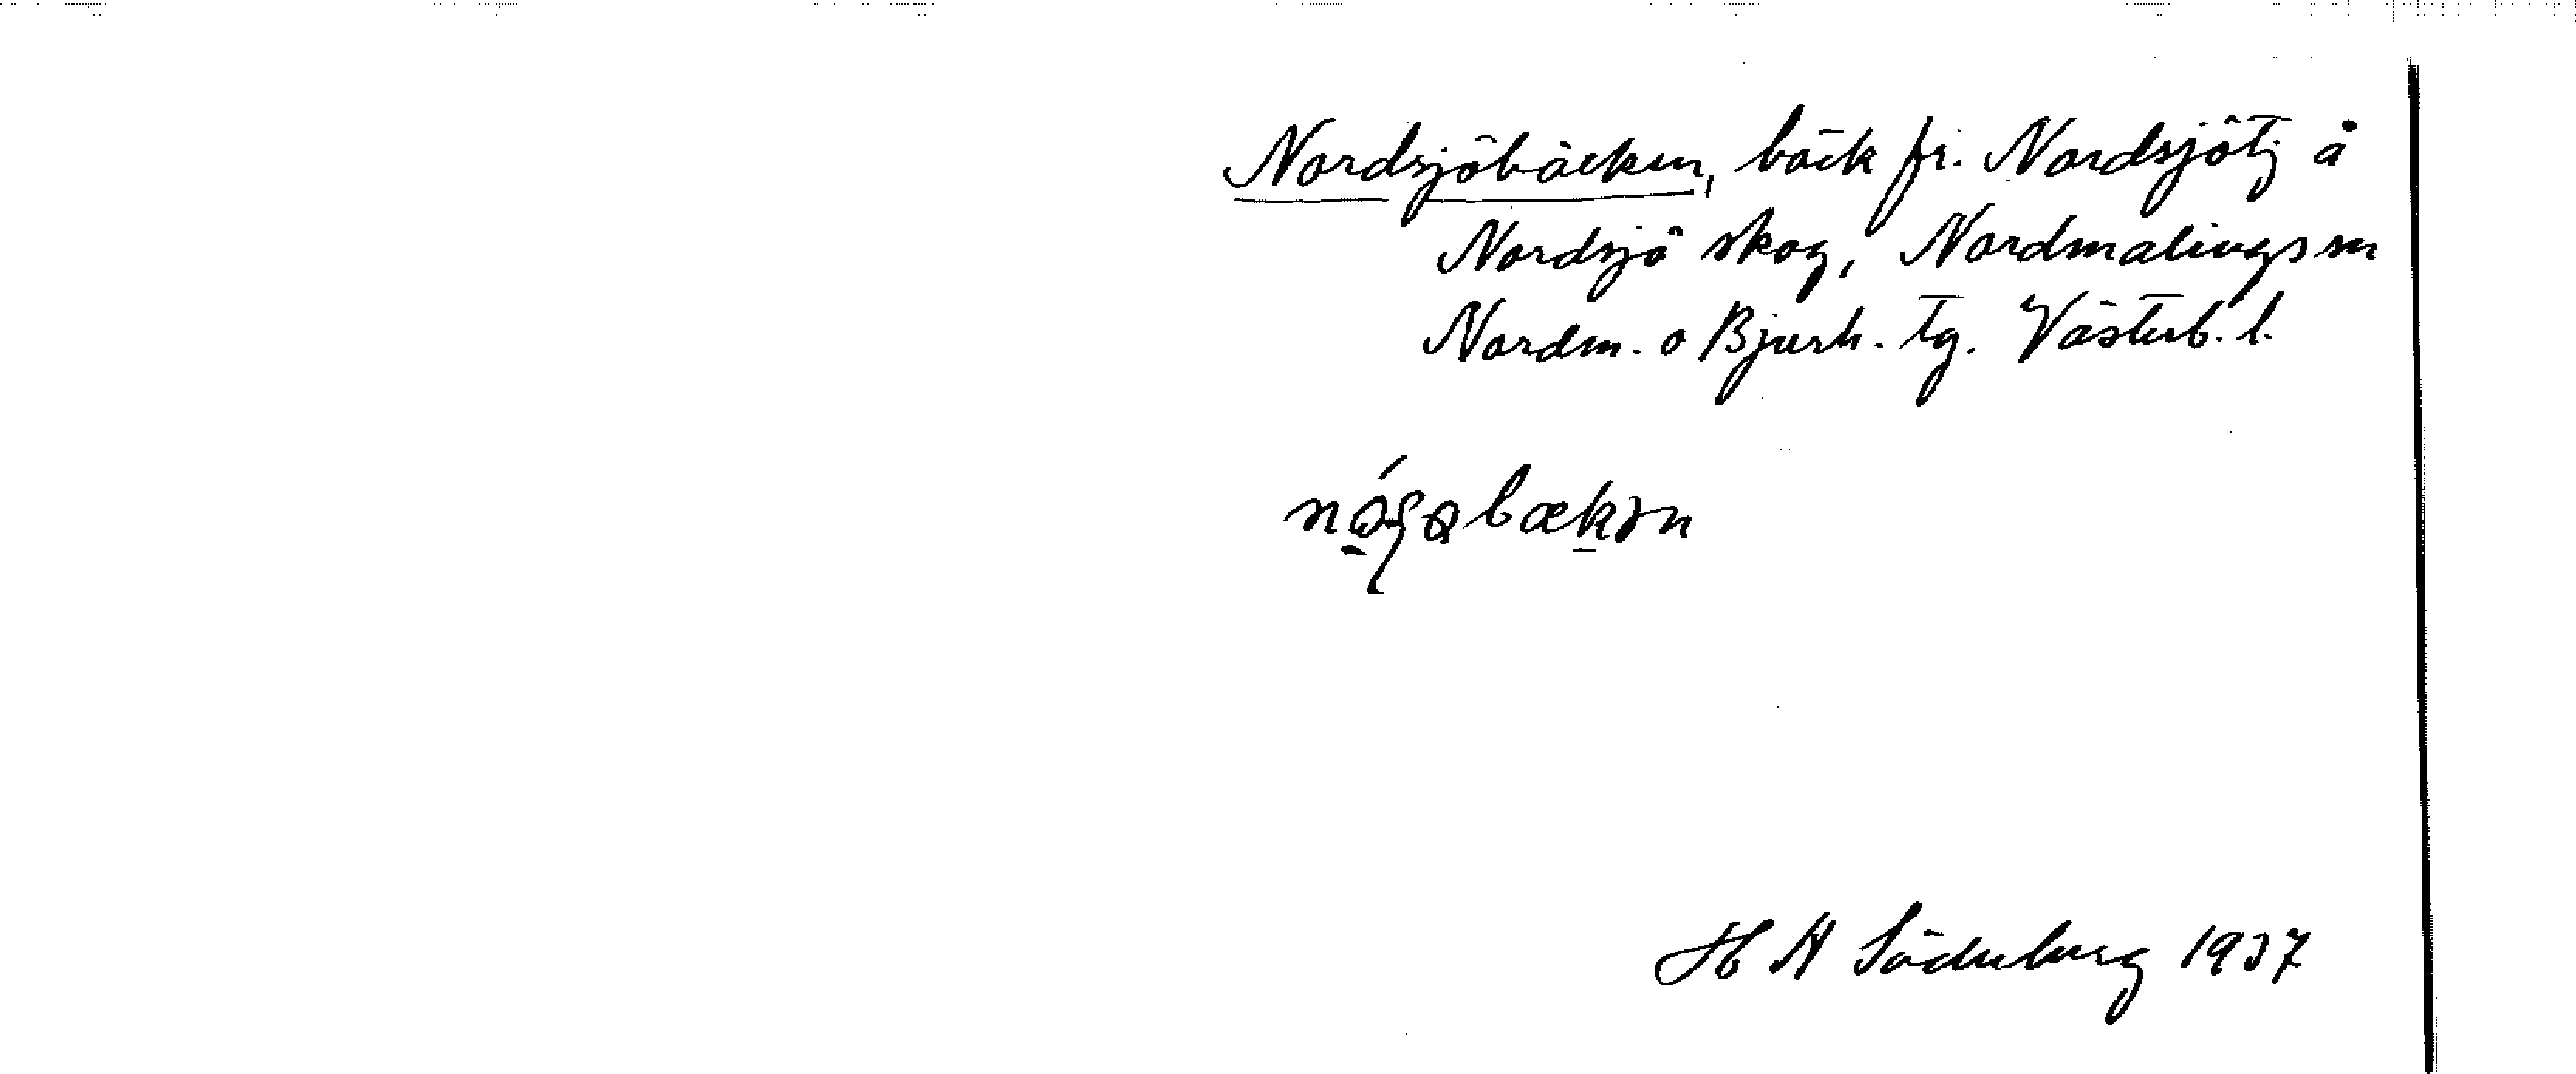 Nordsjöbäcken, bäck fr. Nordsjötj å
Nordsjö skog, Nordmalings sn
Nordm. o Bjurh. tg. Västerb. l.
H A Söderberg 1937